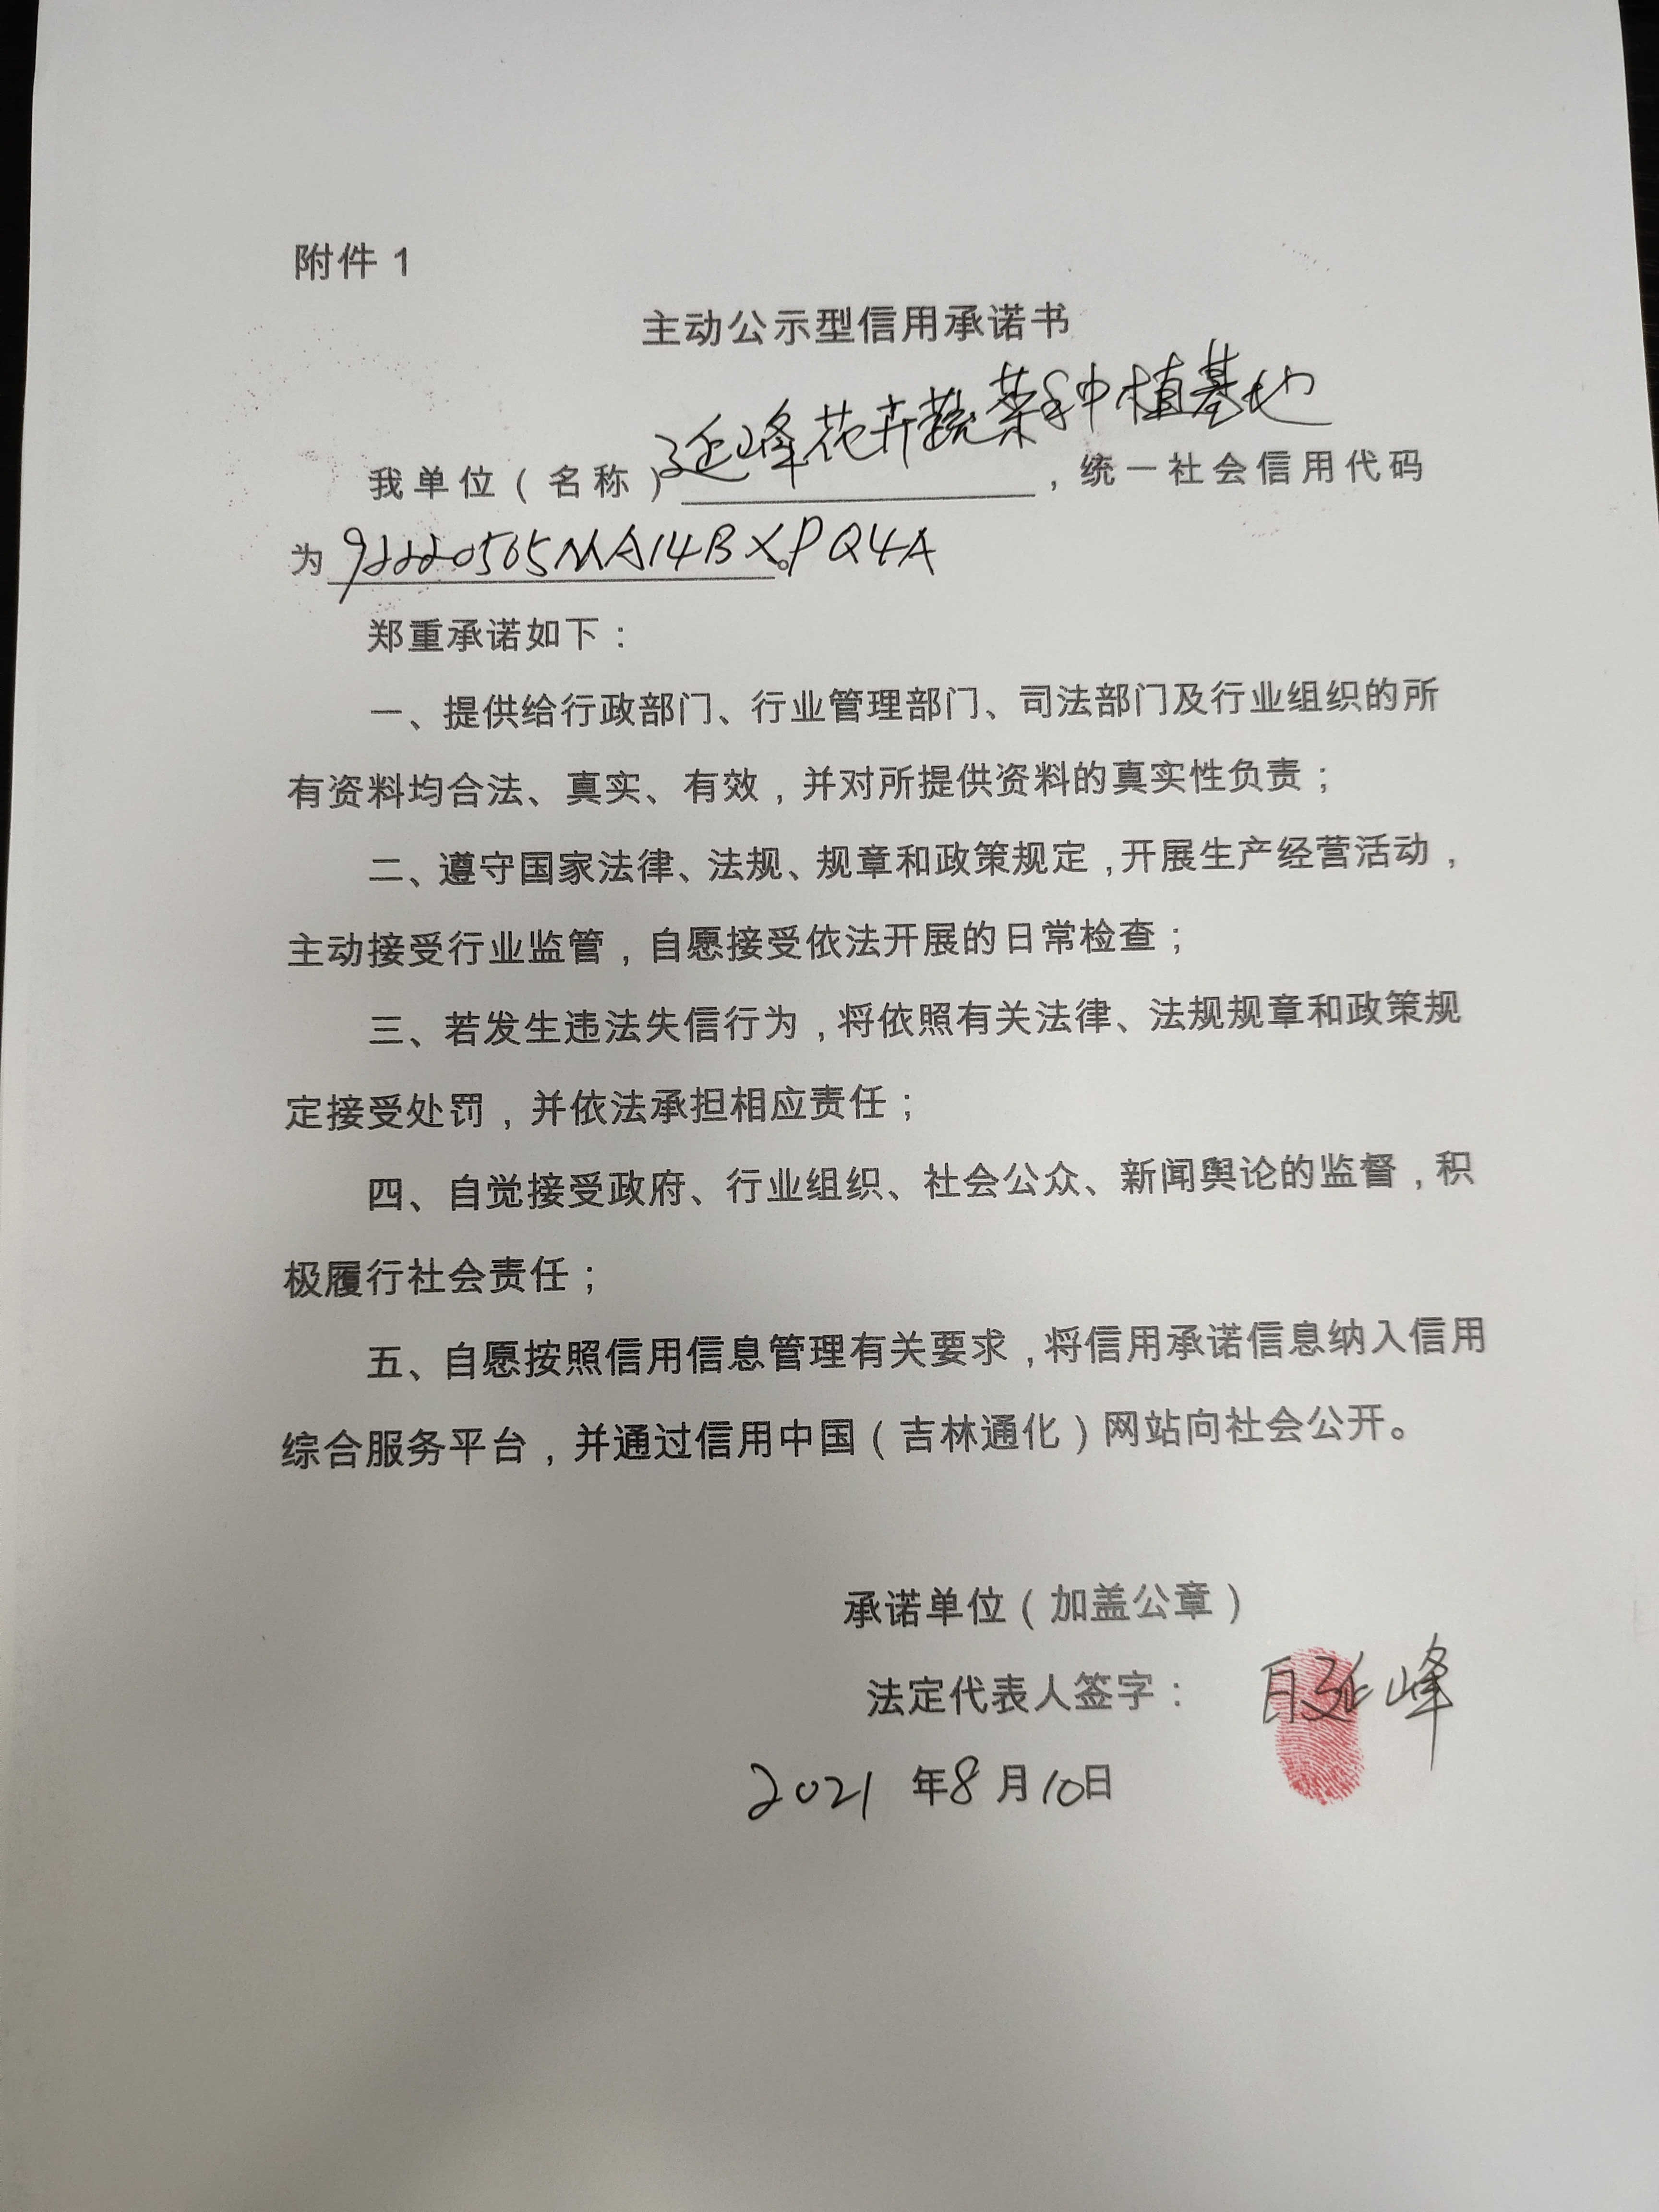 附件 1
主动公示型信用承诺书
我单位（名称）延峰花卉蔬菜种植基地，统一社会信用代码
为92220505MA14BXPQ4A。
郑重承诺如下：
一、提供给行政部门、行业管理部门、司法部门及行业组织的所
有资料均合法、真实、有效，并对所提供资料的真实性负责；
二、遵守国家法律、法规、规章和政策规定，开展生产经营活动，
主动接受行业监管，自愿接受依法开展的日常检查；
三、若发生违法失信行为，将依照有关法律、法规规章和政策规
定接受处罚，并依法承担相应责任；
四、自觉接受政府、行业组织、社会公众、新闻舆论的监督，积
极履行社会责任；
五、自愿按照信用信息管理有关要求，将信用承诺信息纳入信用
综合服务平台，并通过信用中国（吉林通化）网站向社会公开。
承诺单位（加盖公章）
法定代表人签字： 白延峰
2021 年8 月10日